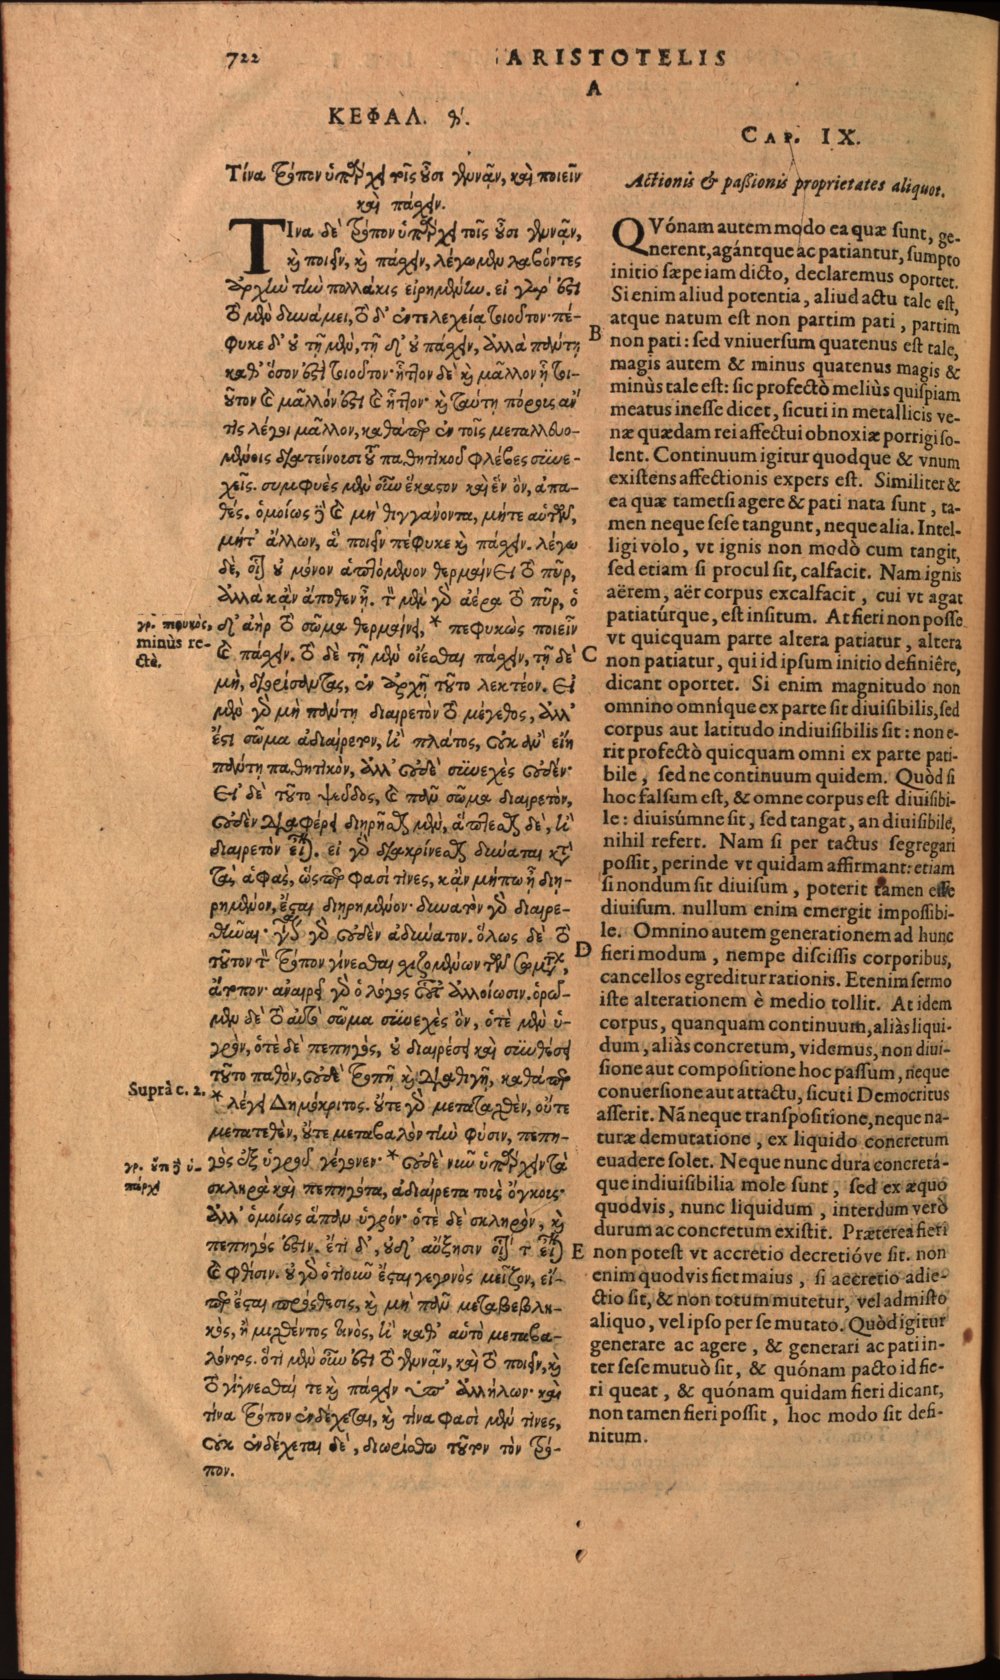 722
ARISTOTELIS
A
ΚΕΦΑΛ. θ´.
Τίνα τρόπον ὑπάρχει τοῖς οὖσι γεννᾷν, καὶ ποιεῖν
καὶ πάσχειν.
ΤΙνα δὲ τρόπον ὑπάρχει τοῖς οὖσι γεννᾷν,
καὶ ποιεῖν, καὶ πάσχειν, λέγωμεν λαβόντες
ἀρχὴν τὴν πολλάκις εἰρημένην. εἰ γάρ ἐστι
τὸ μὲν δυνάμει, τὸ δ᾽ ἐντελεχείᾳ τοιοῦτον· πέ-
φυκε δ᾽ οὐ τῇ μὲν, τῇ δ᾽ οὐ πάσχειν, ἀλλὰ πάντῃ
καθ᾽ ὅσον ἐστὶ τοιοῦτον· ἧττον δὲ καὶ μᾶλλον ᾗ τοι-
οῦτον καὶ μᾶλλόν ἐστι καὶ ἧττον· καὶ ταύτῃ πόροις ἄν
τις λέγοι μᾶλλον, καθάπερ ἐν τοῖς μεταλλευο-
μένοις διατείνουσι τοῦ παθητικοῦ φλέβες συνε-
χεῖς. συμφυὲς μὲν οὖν ἕκαστον καὶ ἓν ὂν, ἀπα-
θές. ὁμοίως δὲ καὶ μὴ θιγγάνοντα, μήτε αὑτῶν,
μήτ᾽ ἄλλων, ἃ ποιεῖν πέφυκε καὶ πάσχειν. λέγω
δὲ, οἷον οὐ μόνον ἁπτόμενον θερμαίνει τὸ πῦρ,
ἀλλὰ κἂν ἄποθεν ᾖ. τὸν μὲν γὰρ ἀέρα τὸ πῦρ, ὁ
δ᾽ ἀὴρ τὸ σῶμα θερμαίνει, * πεφυκὼς ποιεῖν
καὶ πάσχειν. τὸ δὲ τῇ μὲν οἴεσθαι πάσχειν, τῇ δὲ
μὴ, διορίσαντας, ἐν ἀρχῇ τοῦτο λεκτέον. εἰ
μὲν γὰρ μὴ πάντῃ διαιρετὸν τὸ μέγεθος, ἀλλ᾽
ἔστι σῶμα ἀδιαίρετον, ἢ πλάτος, οὐκ ἂν εἴη
πάντῃ παθητικὸν, ἀλλ᾽ οὐδὲ συνεχὲς οὐδέν·
εἰ δὲ τοῦτο ψεῦδος, καὶ πᾶν σῶμα διαιρετὸν,
οὐδὲν διαφέρει διῃρῆσθαι μὲν, ἅπτεσθαι δὲ, ἢ
διαιρετὸν εἶναι. εἰ γὰρ διακρίνεσθαι δύναται κατὰ
τὰς ἁφὰς, ὥσπερ φασί τινες, κἂν μήπω ᾖ διῃ-
ρημένον, ἔσται διῃρημένον· δυνατὸν γὰρ διαιρε-
θῆναι· γίνεται γὰρ οὐδὲν ἀδύνατον. ὅλως δὲ τὸ
τοῦτον τὸν τρόπον γίνεσθαι σχιζομένων τῶν σωμάτων,
ἄτοπον· ἀναιρεῖ γὰρ ὁ λόγος οὗτος ἀλλοίωσιν. ὁρῶ-
μεν δὲ τὸ αὐτὸ σῶμα συνεχὲς ὂν, ὁτὲ μὲν ὑ-
γρὸν, ὁτὲ δὲ πεπηγὸς, οὐ διαιρέσει καὶ συνθέσει
τοῦτο παθὸν, οὐδὲ τροπῇ καὶ διαθιγῇ, καθάπερ
* λέγει Δημόκριτος. οὔτε γὰρ μεταταχθὲν, οὔτε
μετατεθὲν, οὔτε μεταβαλὸν τὴν φύσιν, πεπη-
γὸς ἐξ ὑγροῦ γέγονεν· * οὐδὲ νῦν ὑπάρχειν τὰ
σκληρὰ καὶ πεπηγότα, ἀδιαίρετα τοὺς ὄγκους·
ἀλλ᾽ ὁμοίως ἅπαν ὑγρόν· ὁτὲ δὲ σκληρὸν, καὶ
πεπηγός ἐστιν. ἔτι δ᾽, οὐδ᾽ αὔξησιν οἷόν τ᾽ εἶναι
καὶ φθίσιν. οὐ γὰρ ὁτιοῦν ἔσται γεγονὸς μεῖζον, εἴ-
περ ἔσται πρόσθεσις, καὶ μὴ πᾶν μεταβεβλη-
κὸς, ἢ μιχθέντος τινὸς, ἢ καθ᾽ αὑτὸ μεταβα-
λόντος. ὅτι μὲν οὖν ἐστὶ τὸ γεννᾷν, καὶ τὸ ποιεῖν, καὶ
τὸ γίγνεσθαί τε καὶ πάσχειν ὑπ᾽ ἀλλήλων· καὶ
τίνα τρόπον ἐνδέχεται, καὶ τίνα φασὶ μέν τινες,
οὐκ ἐνδέχεται δὲ, διωρίσθω τοῦτον τὸν τρό-
πον.
γρ. πεφυκός.
minùs re-
ctè.
Suprà c. 2.
B
C
D
E
CAP. IX.
Actionis & passionis proprietates aliquot.
QVónam autem modo ea quæ sunt, ge-
nerent, agántque ac patiantur, sumpto
initio sæpe iam dicto, declaremus oportet.
Si enim aliud potentia, aliud actu tale est,
atque natum est non partim pati, partim
non pati: sed vniuersum quatenus est tale,
magis autem & minus quatenus magis &
minùs tale est: sic profectò meliùs quispiam
meatus inesse dicet, sicuti in metallicis ve-
næ quædam rei affectui obnoxiæ porrigi so-
lent. Continuum igitur quodque & vnum
existens affectionis expers est. Similiter &
ea quæ tametsi agere & pati nata sunt, ta-
men neque sese tangunt, neque alia. Intel-
ligi volo, vt ignis non modò cum tangit,
sed etiam si procul sit, calfacit. Nam ignis
aërem, aër corpus excalfacit, cui vt agat
patiatúrque, est insitum. At fieri non posse
vt quicquam parte altera patiatur, altera
non patiatur, qui id ipsum initio definiêre,
dicant oportet. Si enim magnitudo non
omnino omníque ex parte sit diuisibilis, sed
corpus aut latitudo indiuisibilis sit: non e-
rit profectò quicquam omni ex parte pati-
bile, sed ne continuum quidem. Quòd si
hoc falsum est, & omne corpus est diuisibi-
le: diuisúmne sit, sed tangat, an diuisibile,
nihil refert. Nam si per tactus segregari
possit, perinde vt quidam affirmant: etiam
si nondum sit diuisum, poterit tamen esse
diuisum. nullum enim emergit impossibi-
le. Omnino autem generationem ad hunc
fieri modum, nempe discissis corporibus,
cancellos egreditur rationis. Etenim sermo
iste alterationem è medio tollit. At idem
corpus, quanquam continuum, aliàs liqui-
dum, aliàs concretum, videmus, non diui-
sione aut compositione hoc passum, neque
conuersione aut attactu, sicuti Democritus
asserit. Nã neque transpositione, neque na-
turæ demutatione, ex liquido concretum
euadere solet. Neque nunc dura concretá-
que indiuisibilia mole sunt, sed ex æquo
quodvis, nunc liquidum, interdum verò
durum ac concretum existit. Præterea fieri
non potest vt accretio decretióve sit. non
enim quodvis fiet maius, si accretio adie-
ctio sit, & non totum mutetur, vel admisto
aliquo, vel ipso per se mutato. Quòd igitur
generare ac agere, & generari ac pati in-
ter sese mutuò sit, & quónam pacto id fie-
ri queat, & quónam quidam fieri dicant,
non tamen fieri possit, hoc modo sit defi-
nitum.